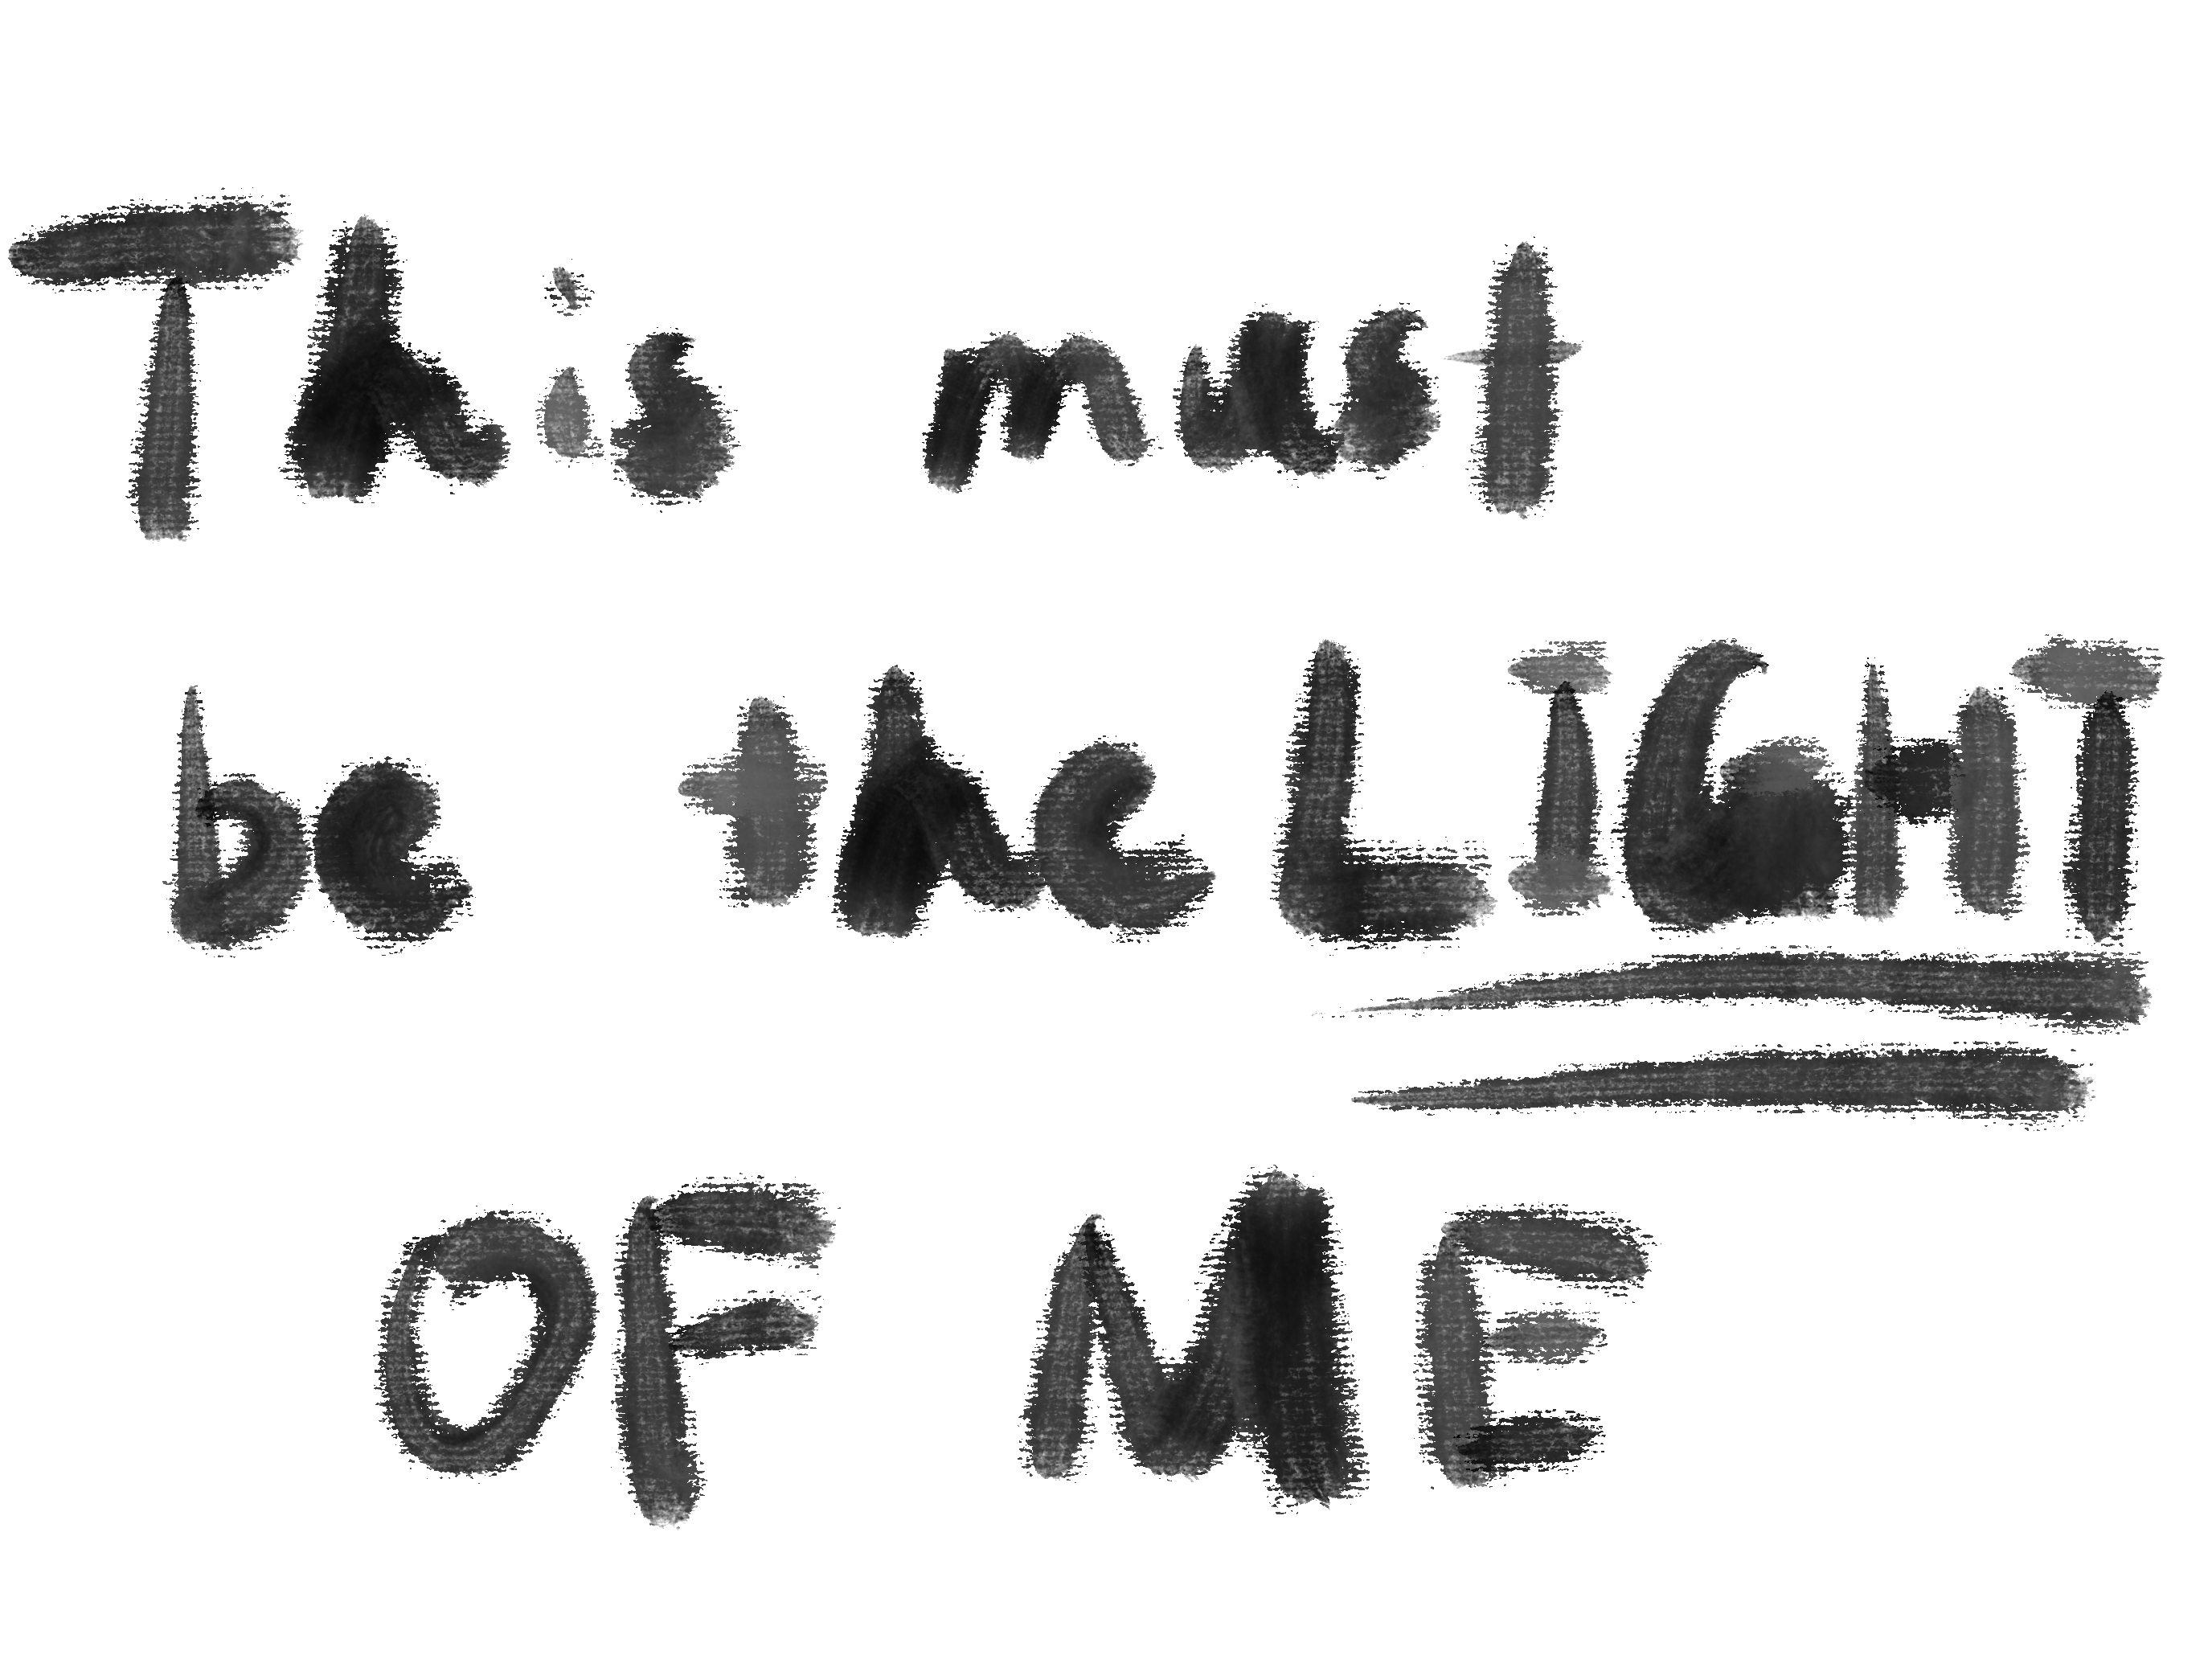 This must
be the LIGHT
OF ME